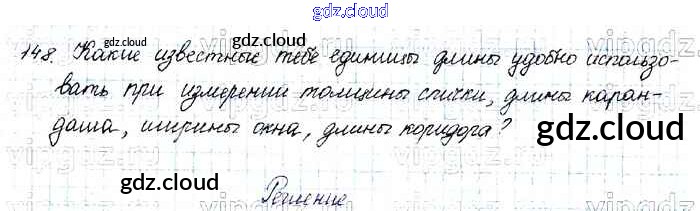 gdz.cool
148. Какие известные тебе единицы длины удобно использо-
вать при измерении толщины спички, длины каран-
даша, ширины окна, длины коридора?
gdz.cool
gdz.cool
gdz.cool
gdz.cool
Решение